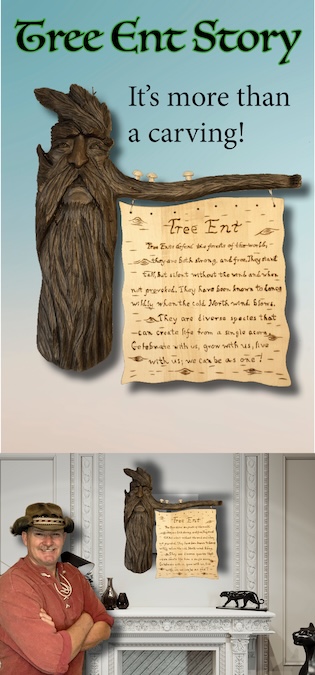 Tree Ent Story
It's more than
a carving!
Tree Ent
Tree Ents defend the forests of the world,
they are both strong and free. They stand
tall, but silent without the wind and when
not provoked. They have been known to dance
wildly when the cold North wind blows.
They are diverse species that
can create life from a single acorn.
Celebrate with us, grow with us, live
with us; we can be as one!
Tree Ent